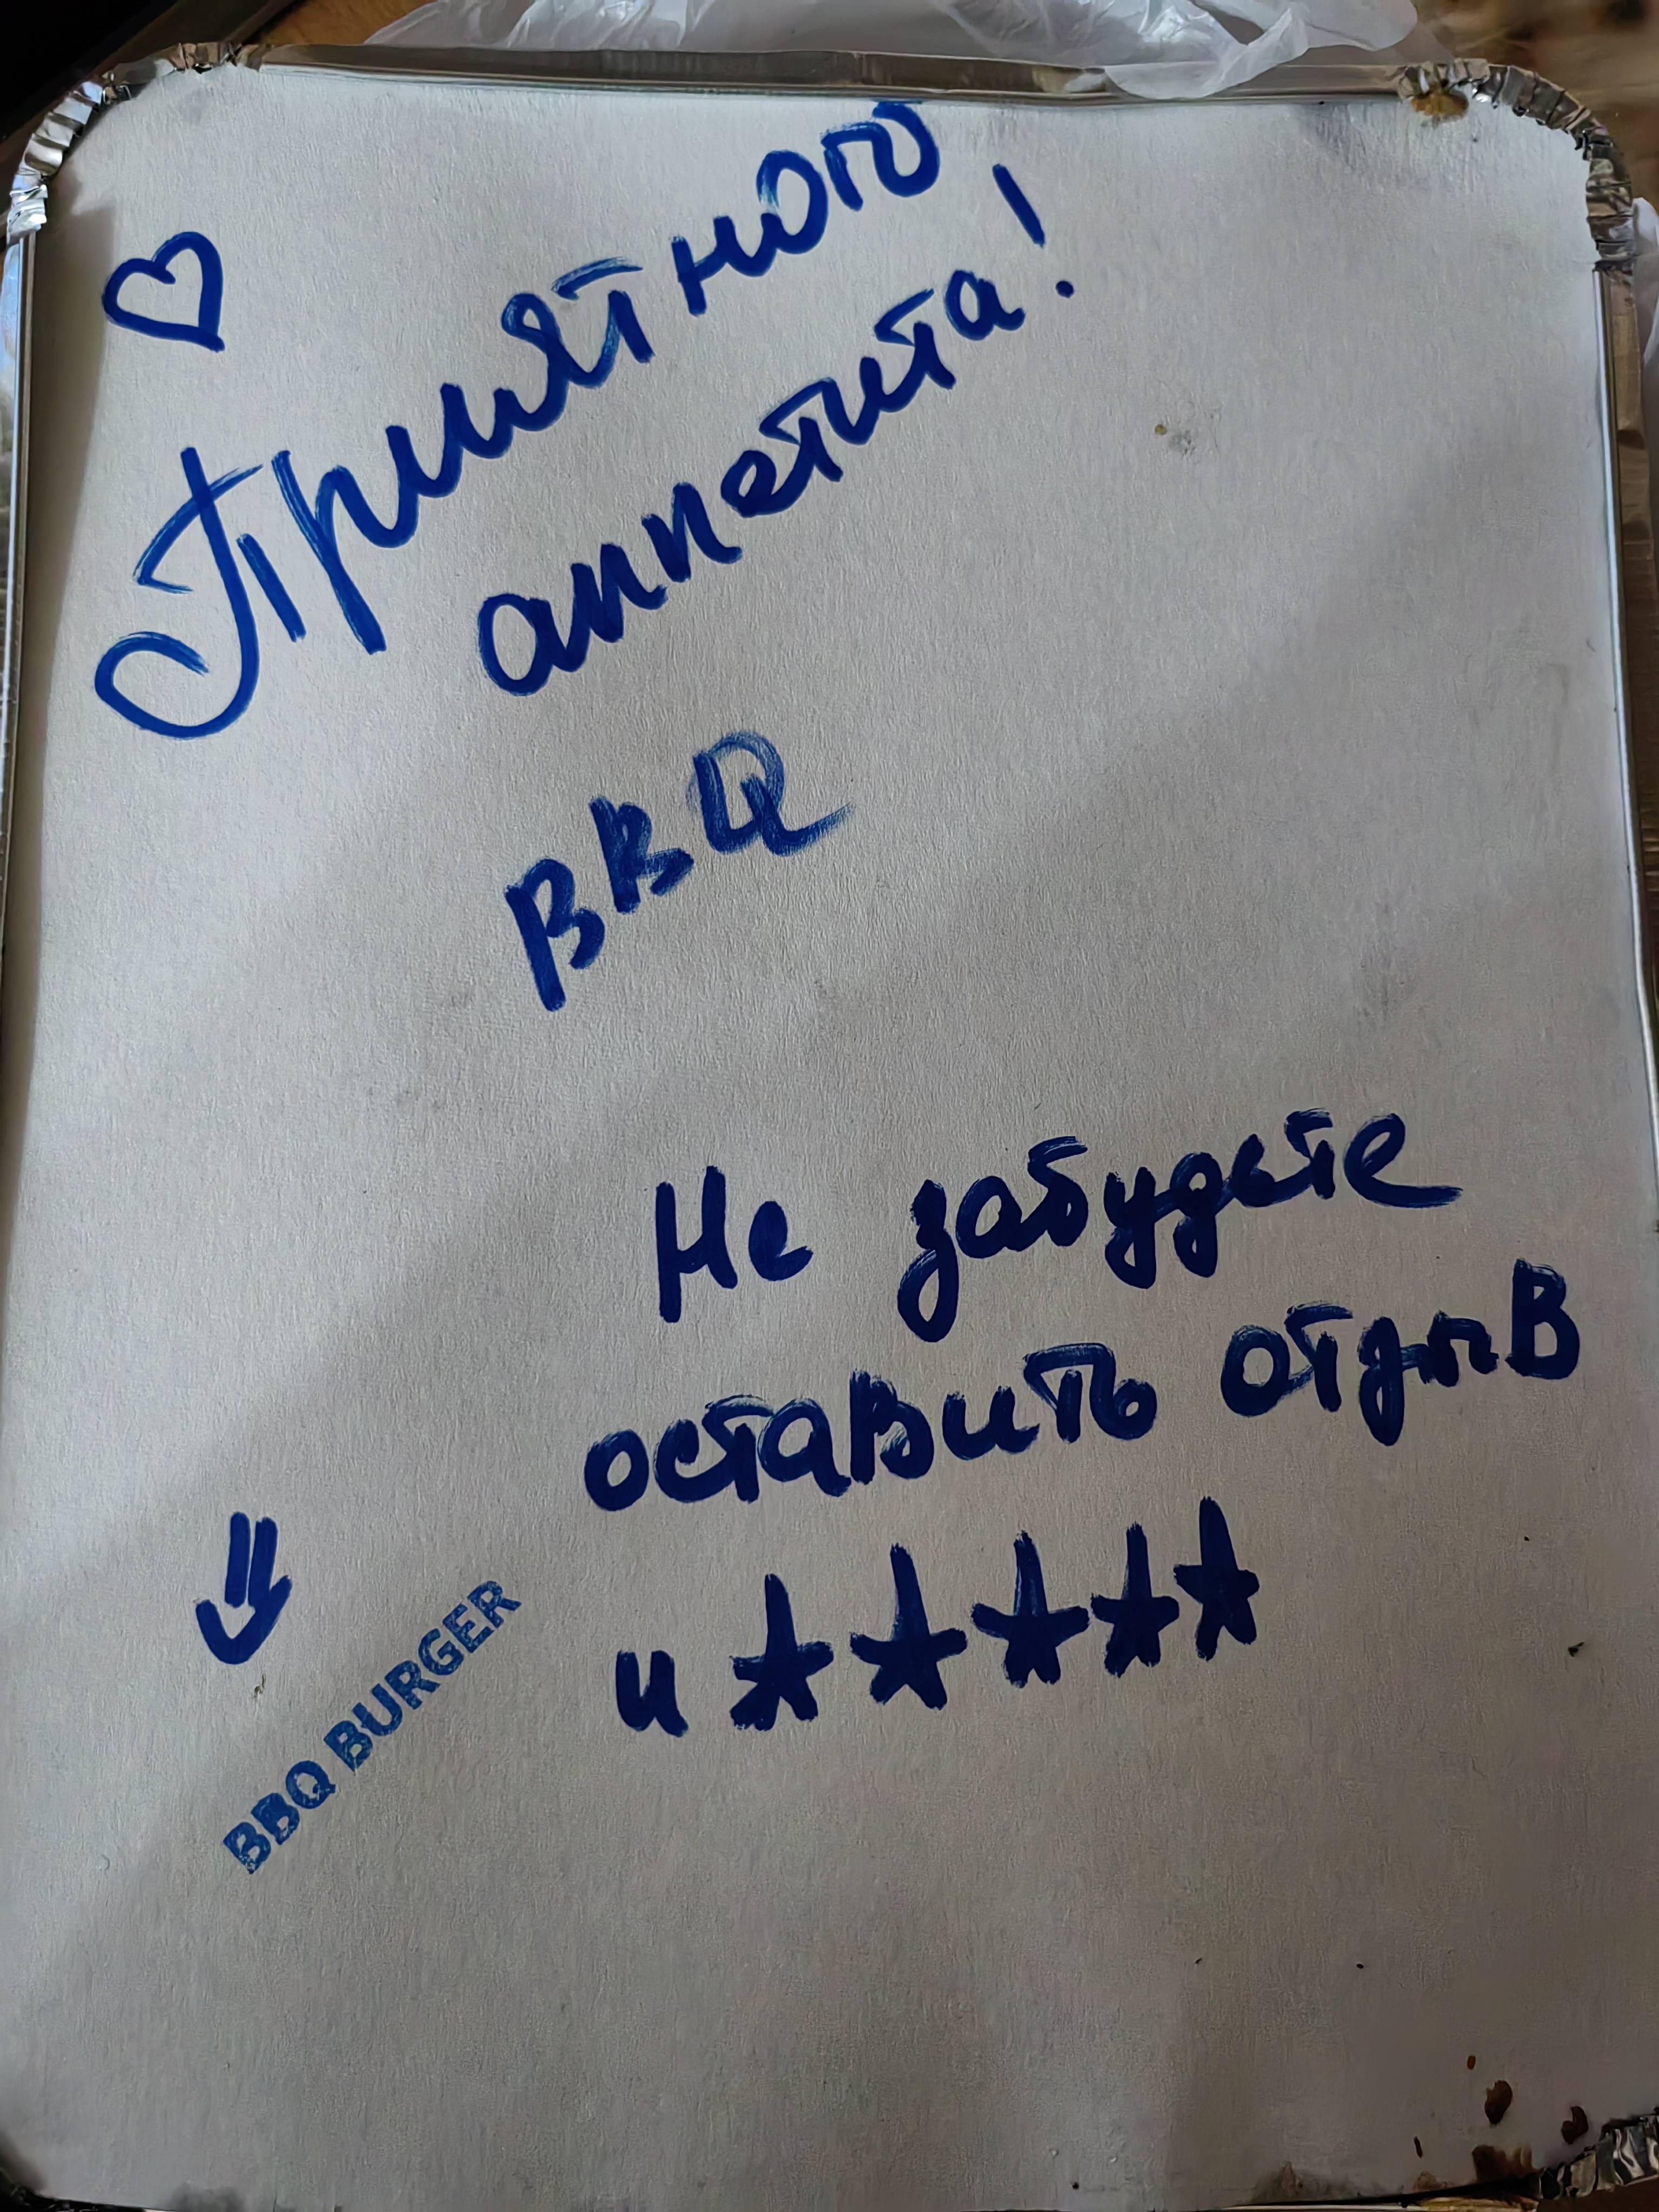 Приятного
аппетита!
BBQ
Не забудьте
оставить отзыв
и ★★★★★
BBQ BURGER